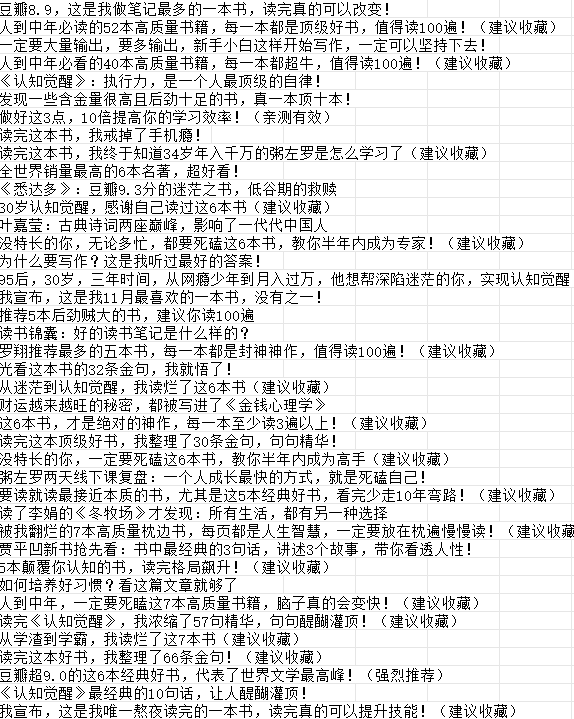 豆瓣8.9，这是我做笔记最多的一本书，读完真的可以改变！
人到中年必读的52本高质量书籍，每一本都是顶级好书，值得读100遍！（建议收藏）
一定要大量输出，要多输出，新手小白这样开始写作，一定可以坚持下去！
人到中年必看的40本高质量书籍，每一本都超牛，值得读100遍！（建议收藏）
《认知觉醒》：执行力，是一个人最顶级的自律！
发现一些含金量很高且后劲十足的书，真一本顶十本！
做好这3点，10倍提高你的学习效率！（亲测有效）
读完这本书，我戒掉了手机瘾！
读完这本书，我终于知道34岁年入千万的粥左罗是怎么学习了（建议收藏）
全世界销量最高的6本名著，超好看！
《悉达多》：豆瓣9.3分的迷茫之书，低谷期的救赎
30岁认知觉醒，感谢自己读过这6本书（建议收藏）
叶嘉莹：古典诗词两座巅峰，影响了一代代中国人
没特长的你，无论多忙，都要死磕这6本书，教你半年内成为专家！（建议收藏）
为什么要写作？这是我听过最好的答案！
95后，30岁，三年时间，从网瘾少年到月入过万，他想帮深陷迷茫的你，实现认知觉醒
我宣布，这是我11月最喜欢的一本书，没有之一！
推荐5本后劲贼大的书，建议你读100遍
读书锦囊：好的读书笔记是什么样的？
罗翔推荐最多的五本书，每一本都是封神神作，值得读100遍！（建议收藏）
光看这本书的32条金句，我就悟了！
从迷茫到认知觉醒，我读烂了这6本书（建议收藏）
财运越来越旺的秘密，都被写进了《金钱心理学》
这6本书，才是绝对的神作，每一本至少读3遍以上！（建议收藏）
读完这本顶级好书，我整理了30条金句，句句精华！
没特长的你，一定要死磕这6本书，教你半年内成为高手（建议收藏）
粥左罗两天线下课复盘：一个人成长最快的方式，就是死磕自己！
要读就读最接近本质的书，尤其是这5本经典好书，看完少走10年弯路！（建议收藏）
读了李娟的《冬牧场》才发现：所有生活，都有另一种选择
被我翻烂的7本高质量枕边书，每页都是人生智慧，一定要放在枕遍慢慢读！（建议收藏
贾平凹新书抢先看：书中最经典的3句话，讲述3个故事，带你看透人性！
5本颠覆你认知的书，读完格局飙升！（建议收藏）
如何培养好习惯？看这篇文章就够了
人到中年，一定要死瞌这7本高质量书籍，脑子真的会变快！（建议收藏）
读完《认知觉醒》，我浓缩了57句精华，句句醍醐灌顶！（建议收藏）
从学渣到学霸，我读烂了这7本书（建议收藏）
读完这本好书，我整理了66条金句！（建议收藏）
豆瓣超9.0的这6本经典好书，代表了世界文学最高峰！（强烈推荐）
《认知觉醒》最经典的10句话，让人醍醐灌顶！
我宣布，这是我唯一熬夜读完的一本书，读完真的可以提升技能！（建议收藏）